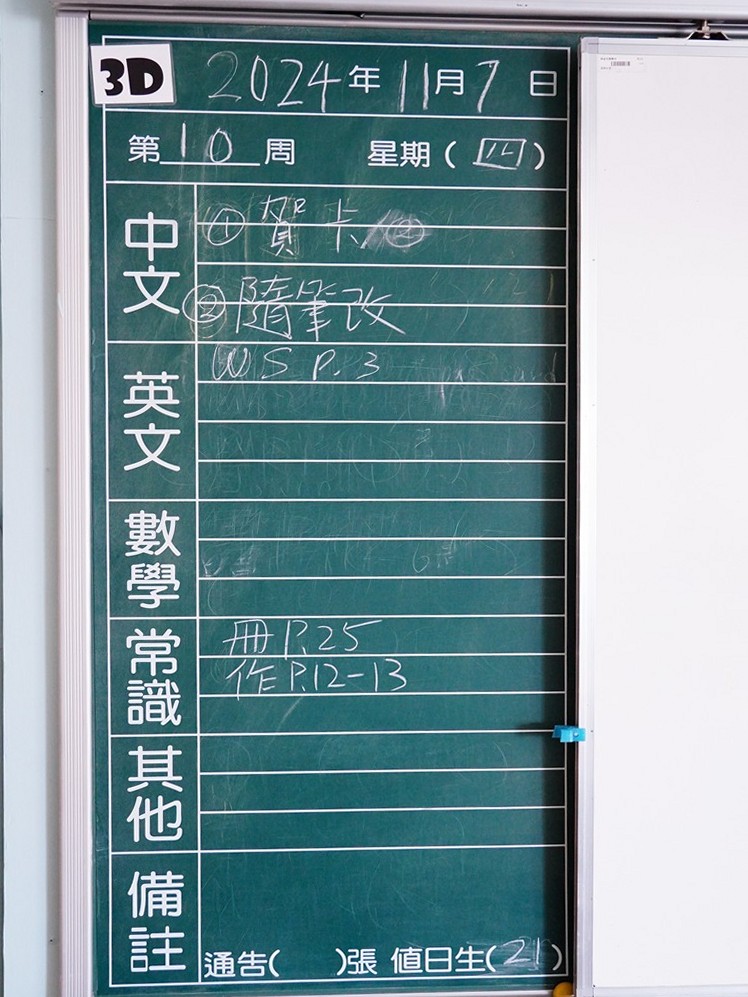 3D 2024年11月7日
第10周 星期(四)
中文 ① 賀卡
② 隨筆改
英文 WS P.3
數學
常識 冊P.25
作P.12-13
其他
備註
通告( )張 值日生(21)